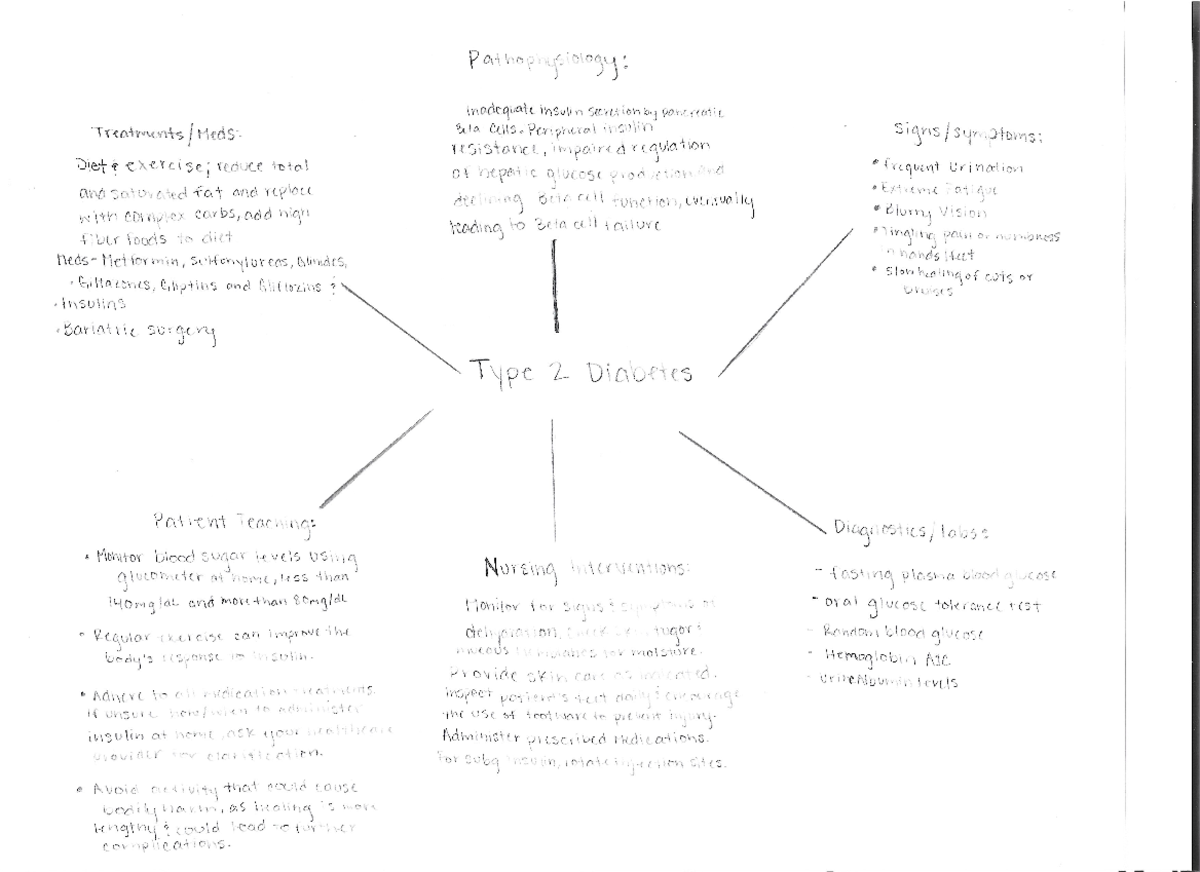 Pathophysiology:
inadequate insulin secretion by pancreatic
Beta cells. Peripheral insulin
resistance, impaired regulation
of hepatic glucose production and
declining Beta cell function, eventually
leading to Beta cell failure
Treatments/Meds:
Diet & exercise; reduce total
and saturated fat and replace
with complex carbs, add high
fiber foods to diet
Meds- Metformin, Sulfonylureas, Glinides,
· Glitazones, Gliptins and Gliflozins &
· Insulins
· Bariatric surgery
Signs/Symptoms:
• Frequent Urination
• Extreme Fatigue
• Blurry Vision
• Tingling pain or numbness
hands/feet
• Slow healing of cuts or
bruises
Type 2 Diabetes
Patient Teaching:
• Monitor blood sugar levels using
glucometer at home, less than
140mg/dL and more than 80mg/dL
• Regular exercise can improve the
body's response to insulin.
• Adhere to all medication treatments.
If unsure how/when to administer
insulin at home, ask your healthcare
provider for clarification.
• Avoid activity that could cause
bodily harm, as healing is more
lengthy & could lead to further
complications.
Nursing Interventions:
Monitor for signs & symptoms of
dehydration, check skin turgor &
mucous membranes for moisture.
Provide skin care as indicated.
inspect patient's feet daily & encourage
the use of footware to prevent injury.
Administer prescribed medications.
For subq insulin, rotate injection sites.
Diagnostics/labs:
- fasting plasma blood glucose
- oral glucose tolerance test
- Random blood glucose
- Hemoglobin A1C
- Urine Albumin levels